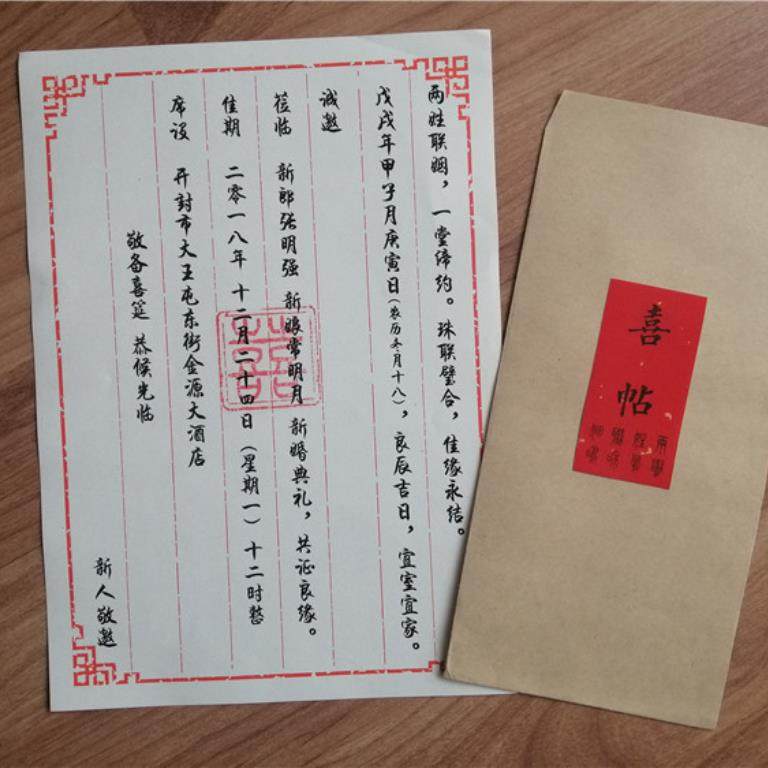 两姓联姻，一堂缔约。珠联璧合，佳缘永结。
戊戌年甲子月庚寅日（农历冬月十八），良辰吉日，宜室宜家。
诚邀
莅临 新郎张明强 新娘常明月 新婚典礼，共证良缘。
佳期 二零一八年 十二月二十四日（星期一）十二时整
席设 开封市大王屯东街金源大酒店
敬备喜筵 恭候光临
新人敬邀
囍
喜帖